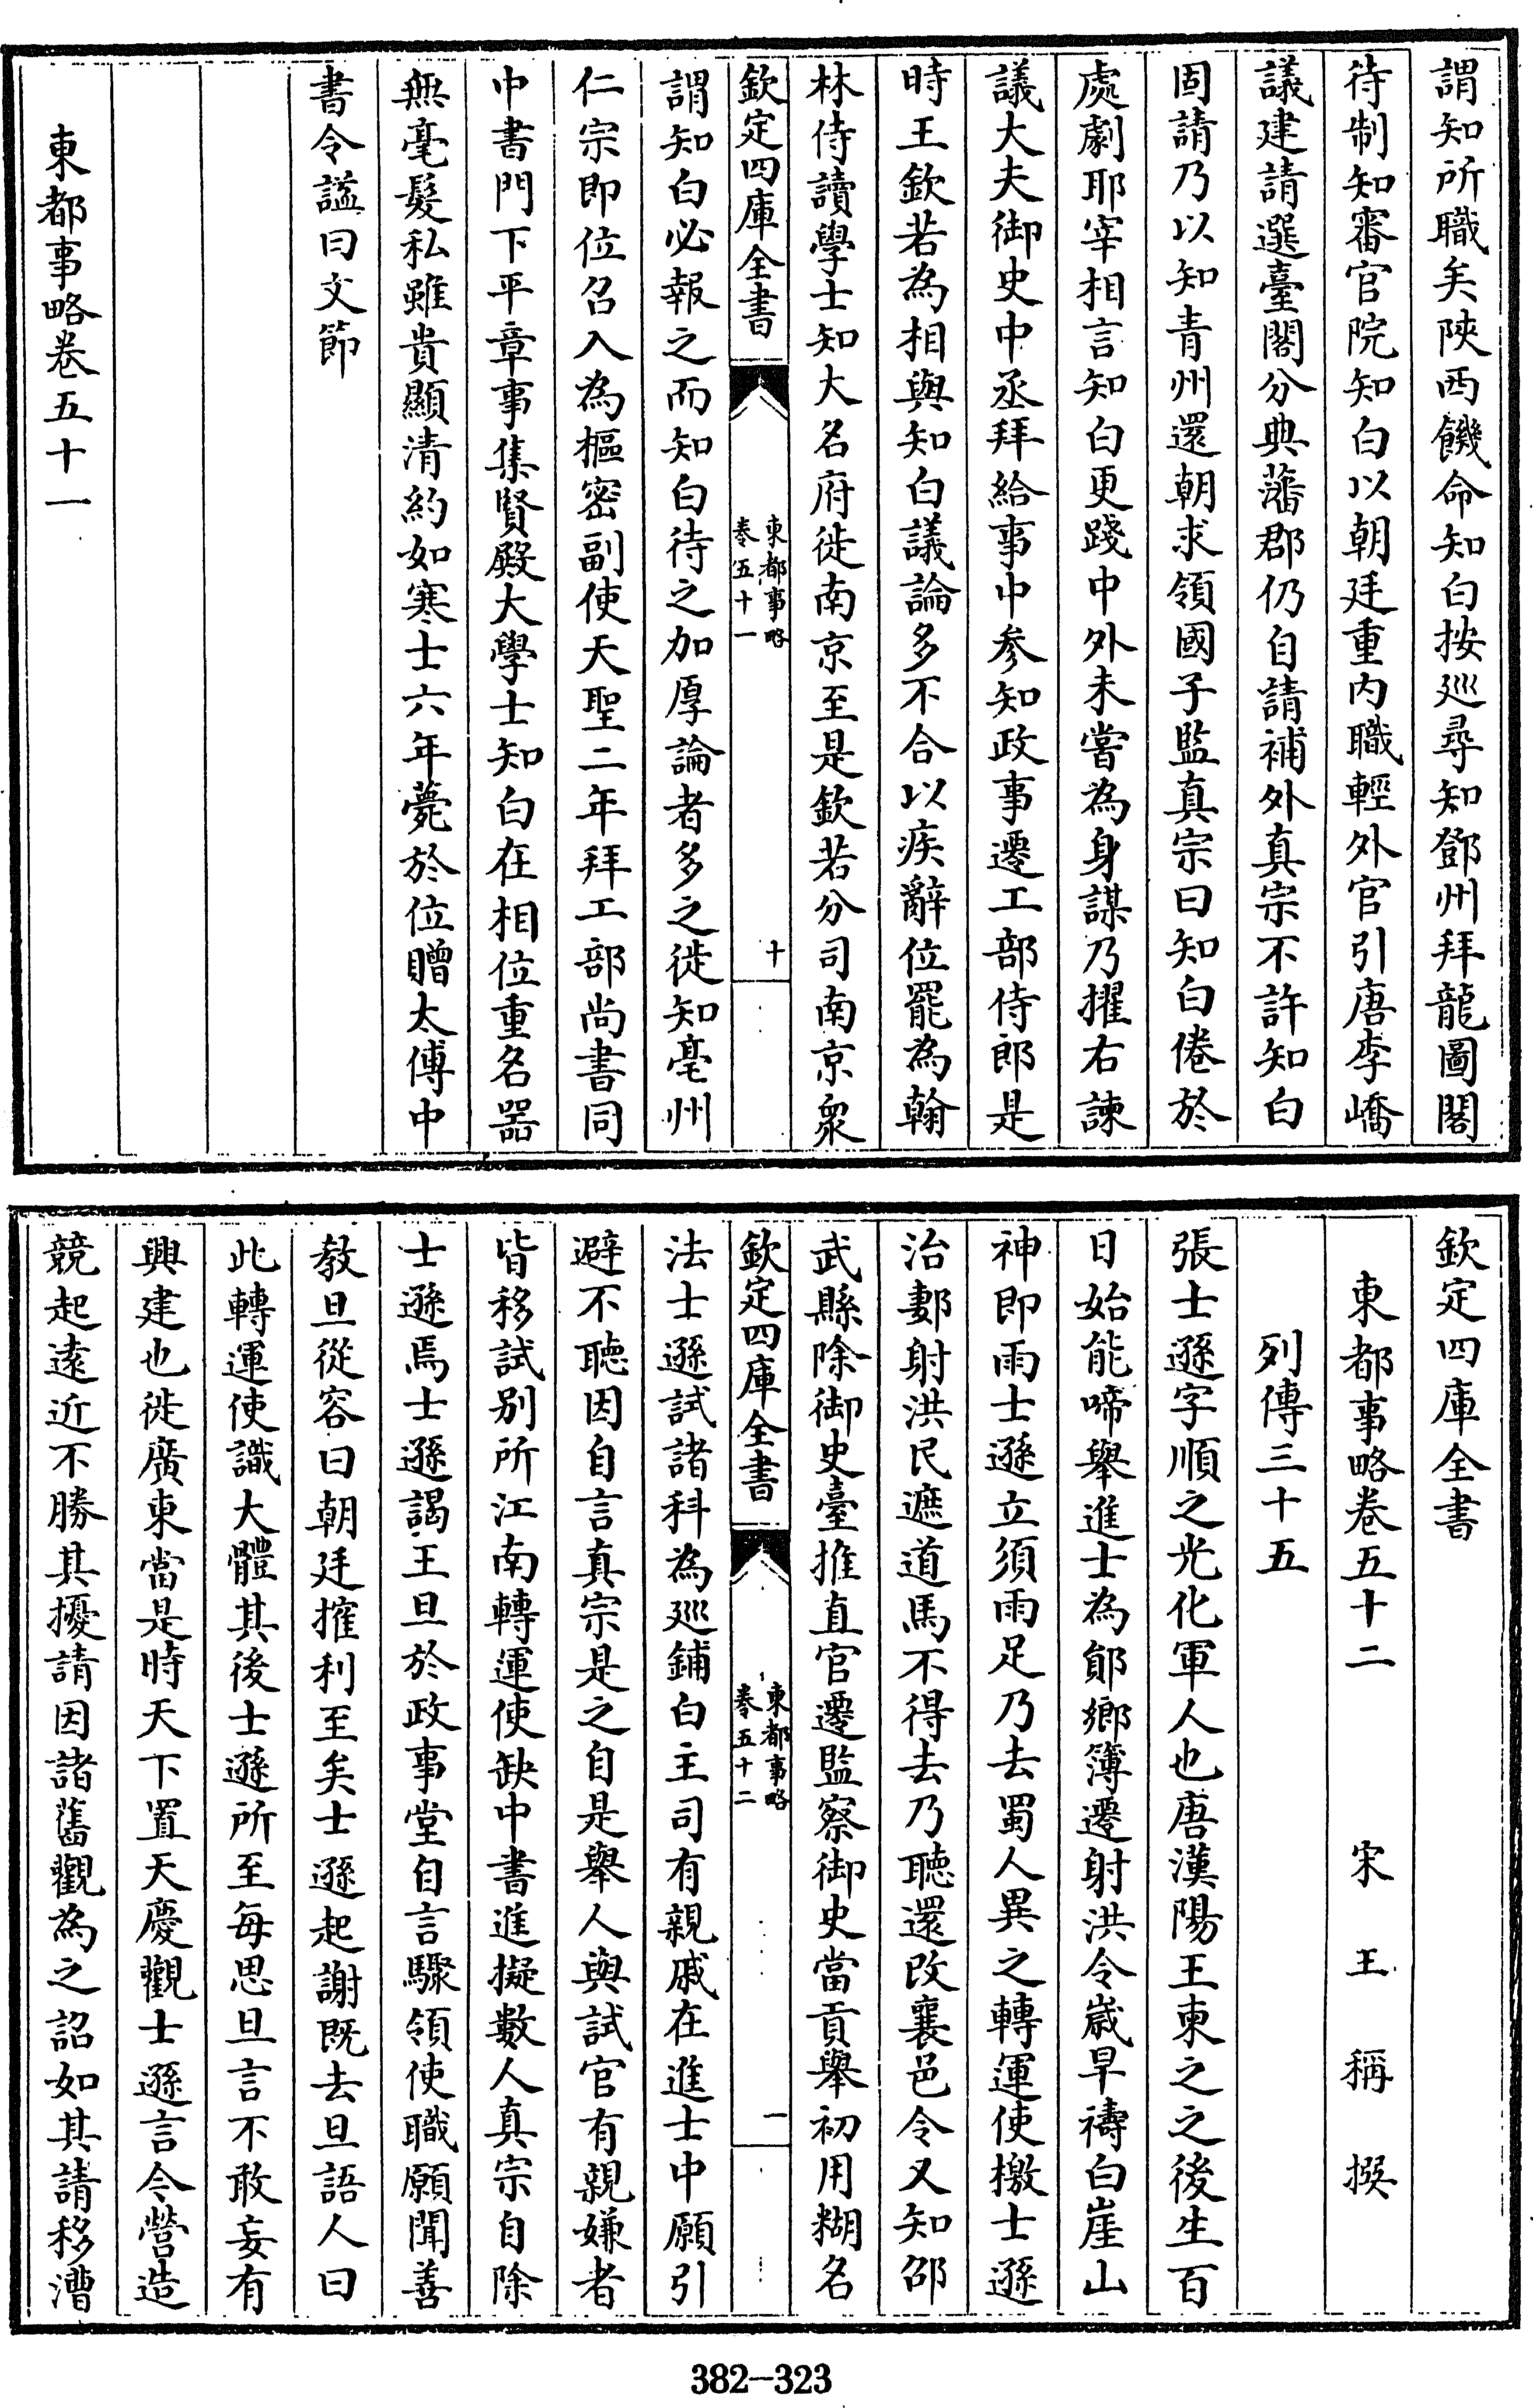 謂知所職矣陜西饑命知白按廵尋知鄧州拜龍圖閣
待制知審官院知白以朝廷重内職輕外官引唐李嶠
議建請選臺閣分典藩郡仍自請補外真宗不許知白
固請乃以知青州還朝求領國子監真宗曰知白倦於
處劇耶宰相言知白更踐中外未嘗為身謀乃擢右諫
議大夫御史中丞拜給事中參知政事遷工部侍郎是
時王欽若為相與知白議論多不合以疾辭位罷為翰
林侍讀學士知大名府徙南京至是欽若分司南京衆
欽定四庫全書
東都事略
卷五十一
十
謂知白必報之而知白待之加厚論者多之徙知亳州
仁宗即位召入為樞密副使天聖二年拜工部尚書同
中書門下平章事集賢殿大學士知白在相位重名器
無毫髮私雖貴顯清約如寒士六年薨於位贈太傅中
書令諡曰文節
東都事略卷五十一
欽定四庫全書
東都事略卷五十二 宋 王 稱 撰
列傳三十五
張士遜字順之光化軍人也唐漢陽王東之之後生百
日始能啼舉進士為鄖鄉簿遷射洪令歳旱禱白崖山
神即雨士遜立須雨足乃去蜀人異之轉運使檄士遜
治郪射洪民遮道馬不得去乃聽還改襄邑令又知邵
武縣除御史臺推直官遷監察御史當貢舉初用糊名
欽定四庫全書
東都事略
卷五十二
一
法士遜試諸科為廵鋪白主司有親戚在進士中願引
避不聽因自言真宗是之自是舉人與試官有親嫌者
皆移試别所江南轉運使缺中書進擬數人真宗自除
士遜焉士遜謁王旦於政事堂自言驟領使職願聞善
教旦從容曰朝廷搉利至矣士遜起謝既去旦語人曰
此轉運使識大體其後士遜所至每思旦言不敢妄有
興建也徙廣東當是時天下置天慶觀士遜言今營造
競起遠近不勝其擾請因諸舊觀為之詔如其請移漕
382-323